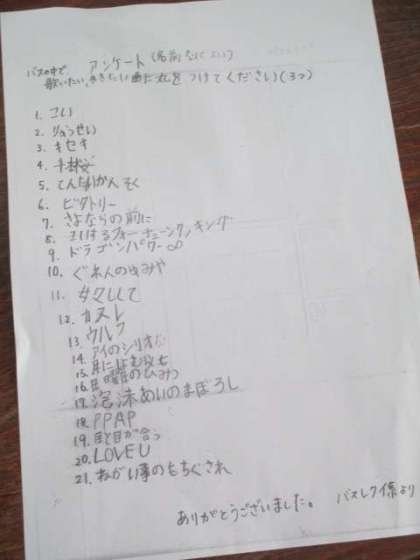 アンケート(名前なくてよい)
バスの中で、
歌いたい、ききたい曲に丸をつけてください(3つ)
1. こい
2. りゅうせい
3. キセキ
4.
5. てんたいかんそく
6. ビクトリー
7. さよならの前に
8. 恋するフォーチュンクッキング
9. ドラゴンパワー∞
10. ぐれんのゆみや
11. 女々しくて
12. カヌレ
13. ウルフ
14. アイのシリオだ
15.
16. 日曜日のひみつ
17. 泡沫あいのまぼろし
18. PPAP
19. 目と目が合う
20. LOVE U
21. ねがい事のもちぐされ
ありがとうございました。 バスレク係より